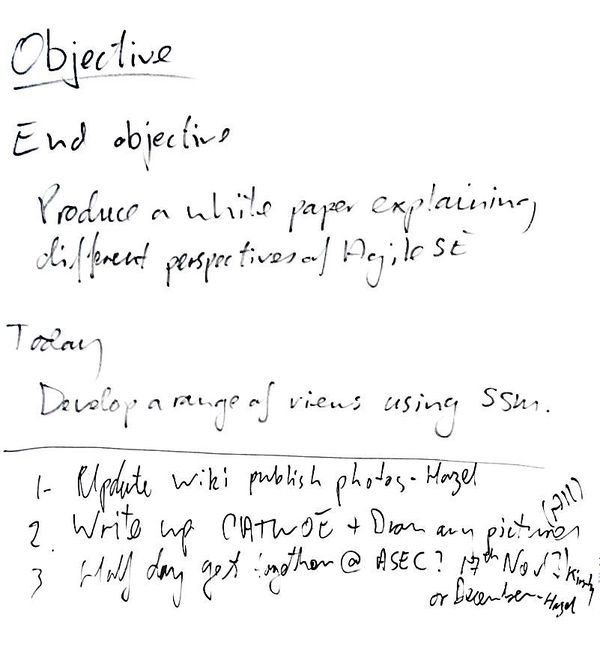 Objective
End objective
Produce a white paper explaining
different perspectives of Agile SE
Today
Develop a range of views using SSM.
1- Update wiki publish photos - Hazel
2. Write up CATWOE + Draw own pictures (all)
3 Half day get together @ ASEC? 17th Nov?
or December - Hazel